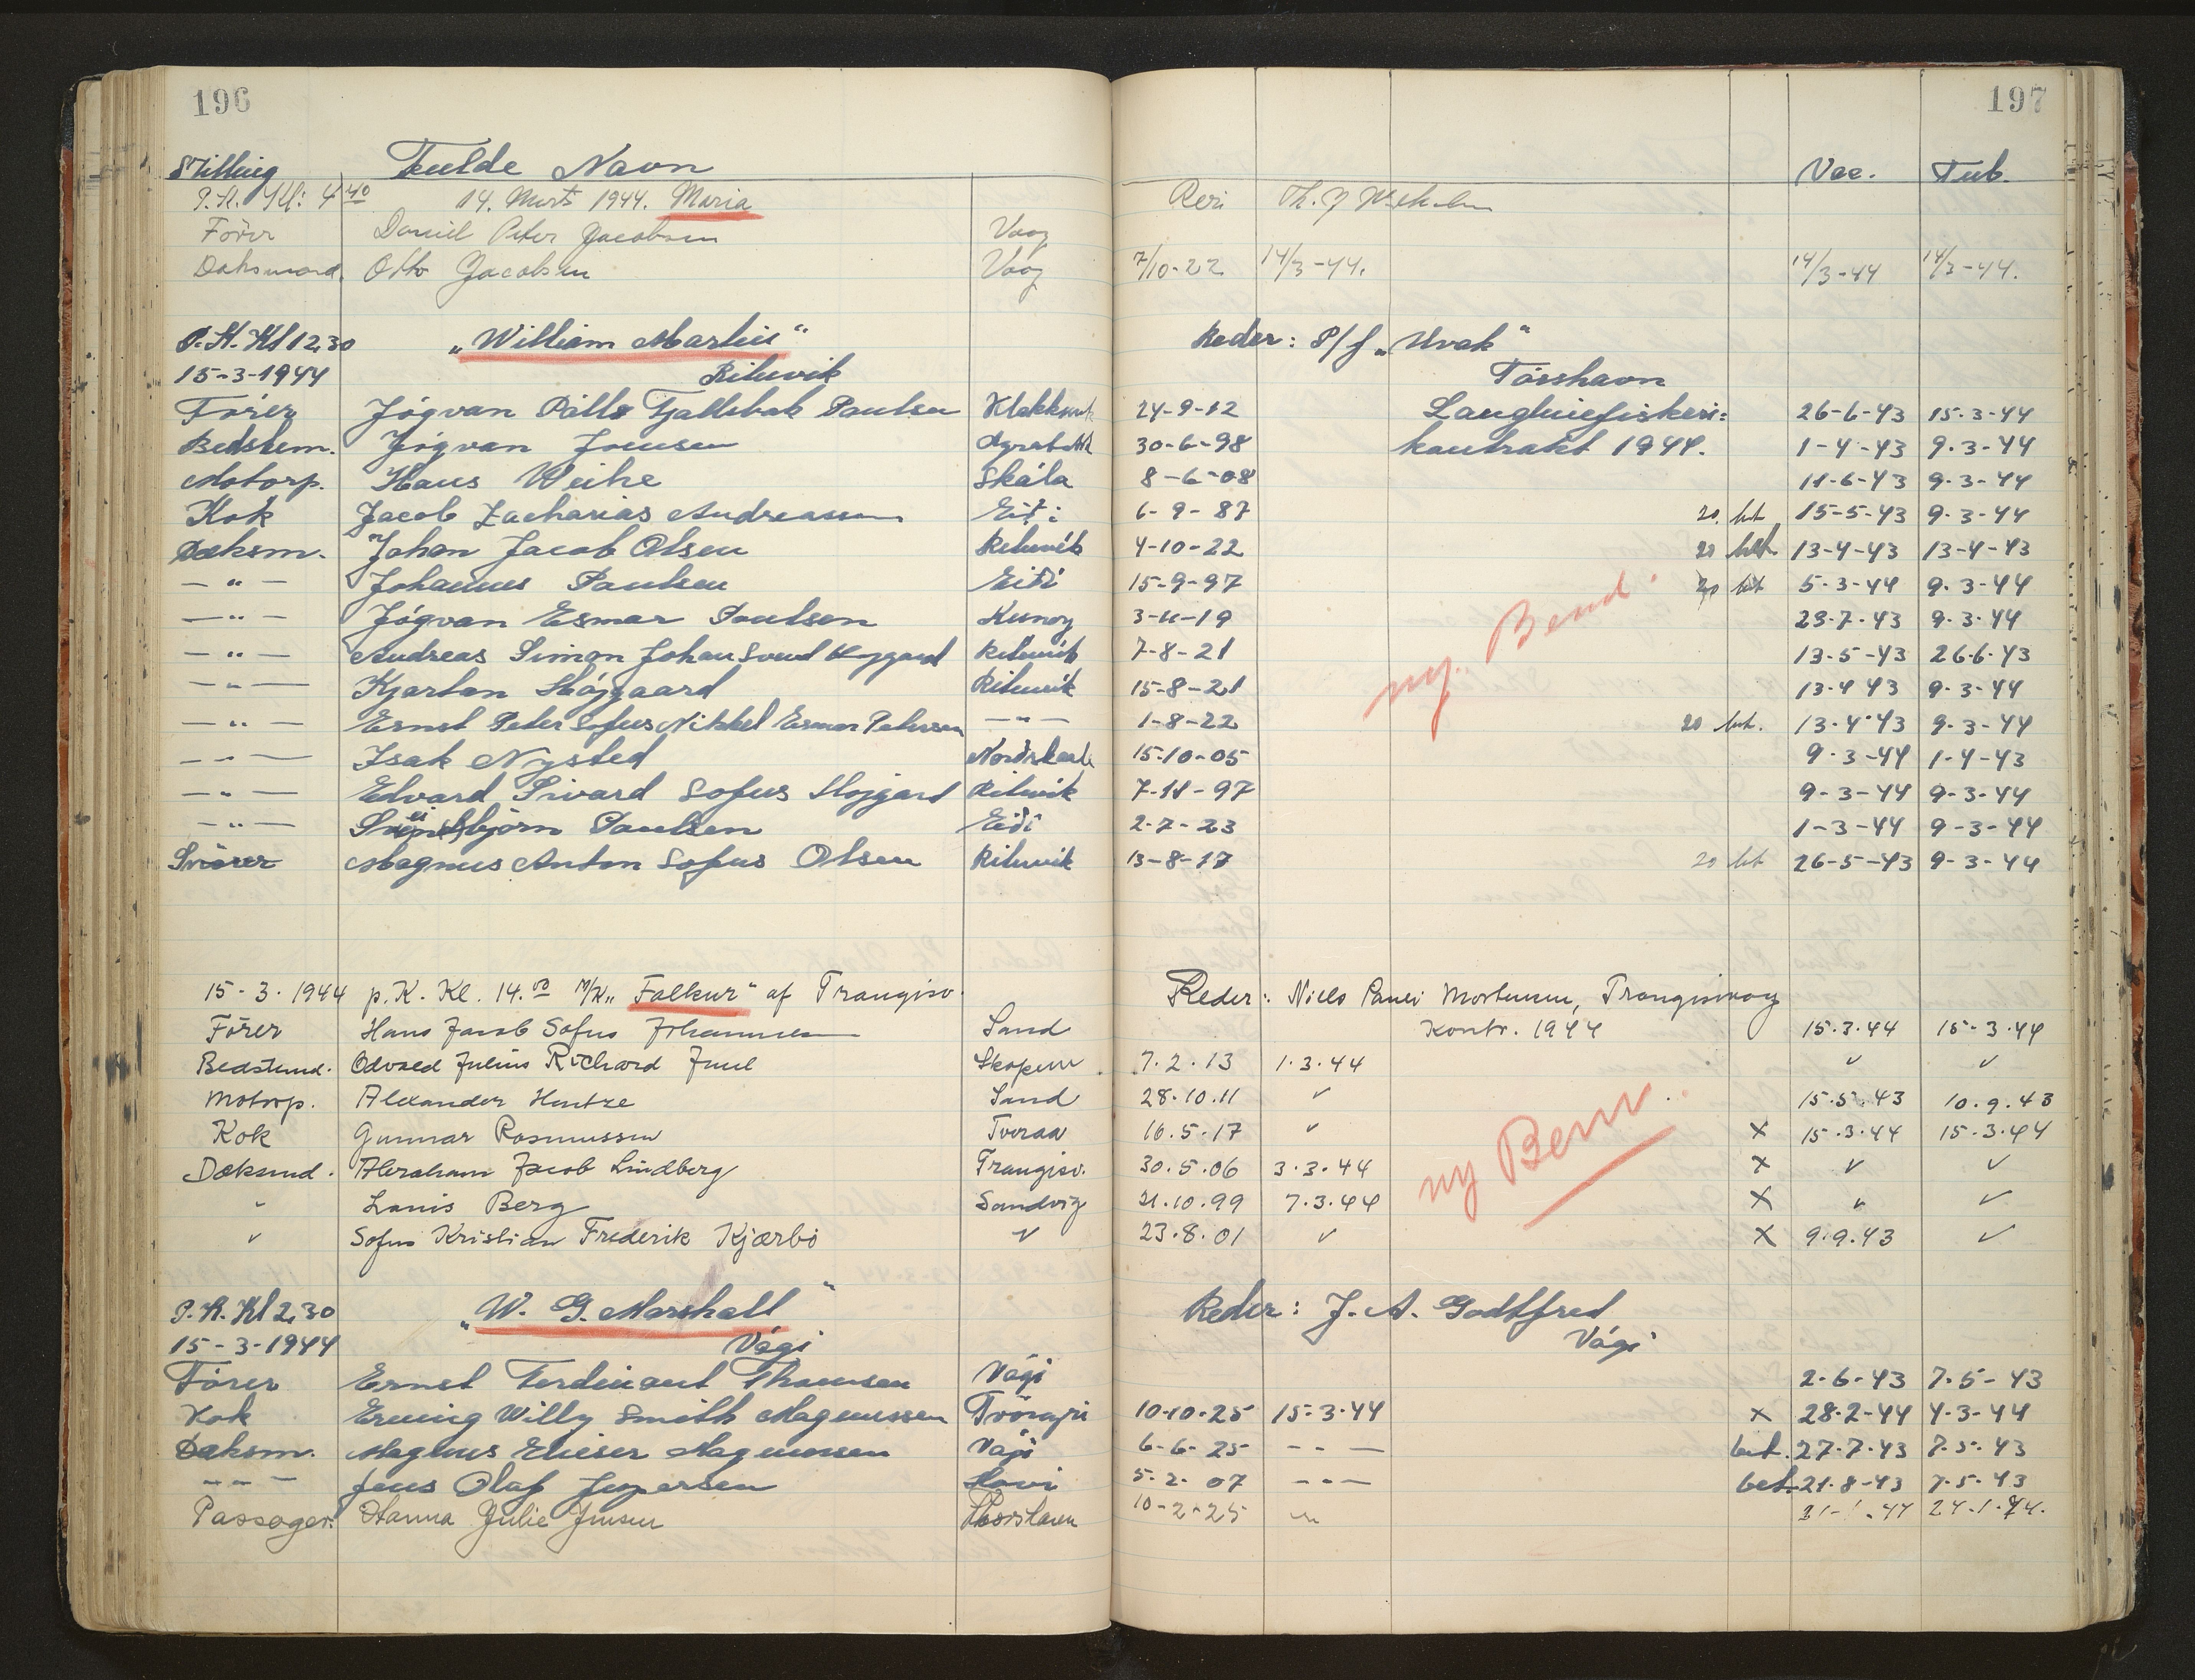 196
197
Stilling Fulde Navn Vac. Tub.
P.K. Kl: 4 40 14. Marts 1944. Maria Reri Th.
Förer Daniel Peter Jacobsen Vaag
Daksmand. Otto Jacobsen Vaag 7/10-22 14/3-44. 14/3-44 14/3-44.
P.K. Kl 12,30 „William Martin“ Reder: P/f „Hvak“
15-3-1944 Rituvik Tórshavn
Förer Jógvan Páll Fjallsbak Paulsen Klakksvík 24-9-12 Langliniefiskeri= 26-6-43 15.3-44
Bedstem. Jógvan Joensen 30-6-98 kontrakt 1944. 1-4-43 9.3-44
Motorp. Hans Weihe Skála 8-6-08 11-6-43 9.3-44
Kok Jacob Zacharias Andreassen Eiði 6-9-87 20. bet 15-5-43 9.3-44
Dæksm. Johan Jacob Olsen Rituvík 4-10-22 20 bet 13-4-43 13-4-43
— „ — Johannus Paulsen Eiði 15-9-97 20 bet 5-3-44 9.3-44
— „ — Jógvan Esmar Poulsen Kunoy 3-11-19 ny. Bemd. 23.7.43 9.3.44
— „ — Andreas Simon Johan Højgaard Rituvík 7-8-21 13-5-43 26.6.43
— „ — Kjartan Højgaard Rituvik 15-8-21 13.4 43 9-3-44
— „ — Ernst Peter Sofus Nikkel Esmar Petersen — „ — 1-8-22 20 bet. 13.4.43 9-3-44
— „ — Isak Nysted 15-10-05 9-3-44 1-4-43
— „ — Edvard Sivard Sofus Højgard Rituvik 7-11-97 9-3-44 9-3-44
— „ — Sveinbjörn Paulsen Eiði 2-7-23 1-3-44 9-3-44
Magnus Anton Sofus Olsen Rituvik 13-8-17 20 bet 26-5-43 9-3-44
15-3.1944 p.K. Kl. 14. M/K „Falkur“ af Trangisv. Reder: Niels Pauli Mortensen, Trongisvaag
Förer Hans Jacob Sofus Johannesen Sand Kontr. 1944 15.3.44 15-3.44
Bedstmd. Odvald Julius Richard Juul Skopun. 7.2.13 1.3.44 ✓ ✓
Motorp. Alexander Hentze Sand 28.10.11 ✓ 15.5.43 10.9.43
Kok Gunnar Rasmussen Tveraa 16.5.17 ✓ ny Bem. X 15.3.44 15.3.44
Dæksmd. Abraham Jacob Lindberg Trangisv. 30.5.06 3.3.44 X ✓ ✓
" Louis Berg Sandvig 21.10.99 7.3.44 X ✓ ✓
✓ Sofus Kristian Frederik Kjærbo ✓ 23.8.01 ✓ X 9.9.43 ✓
P.K. Kl 2,30 „W. G. Marshall“ Reder: J. A. Godtfred
15-3-1944 Vági Vági
Förer Ernst Ferdinant Thomsen Vági 2-6-43 7.5-43
Kok Erning Willy Smith Magnussen Tvöroyri 10-10-25 15-3-44 X 28-2-44 4-3-44
Dæksm. Magnus Elieser Magnussen Vági 6-6-25 - - — bet. 27-7-43 7.5.43
- - — Jens Olaf Jespersen Hovi 5-2-07 - - — bet. 21-8-43 7.5.43
Passager. Hanna Julie Jensen Thorshavn 10-2-25 24.1.44.